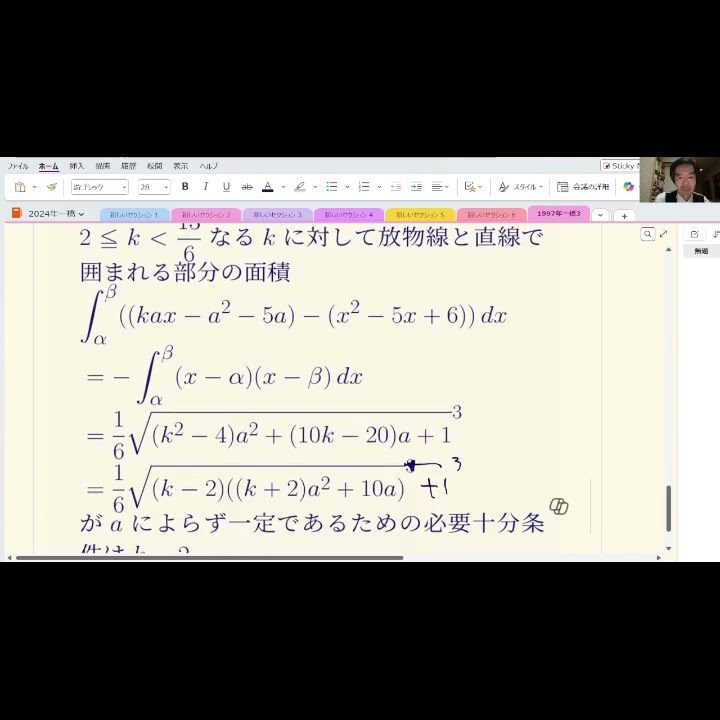 ファイル ホーム 挿入 描画 履歴 校閲 表示 ヘルプ
Sticky N
游ゴシック 28 B I U ab A スタイル 会議の詳細
2024年一橋 新しいセクション 1 新しいセクション 2 新しいセクション 3 新しいセクション 4 新しいセクション 5 新しいセクション 6 1997年一橋3 +
無題
2 ≦ k < 13/6 なる k に対して放物線と直線で
囲まれる部分の面積
∫_α^β ((kax − a² − 5a) − (x² − 5x + 6)) dx
= − ∫_α^β (x − α)(x − β) dx
= 1/6 √((k² − 4)a² + (10k − 20)a + 1)³
= 1/6 √((k − 2)((k + 2)a² + 10a) +1)³
が a によらず一定であるための必要十分条